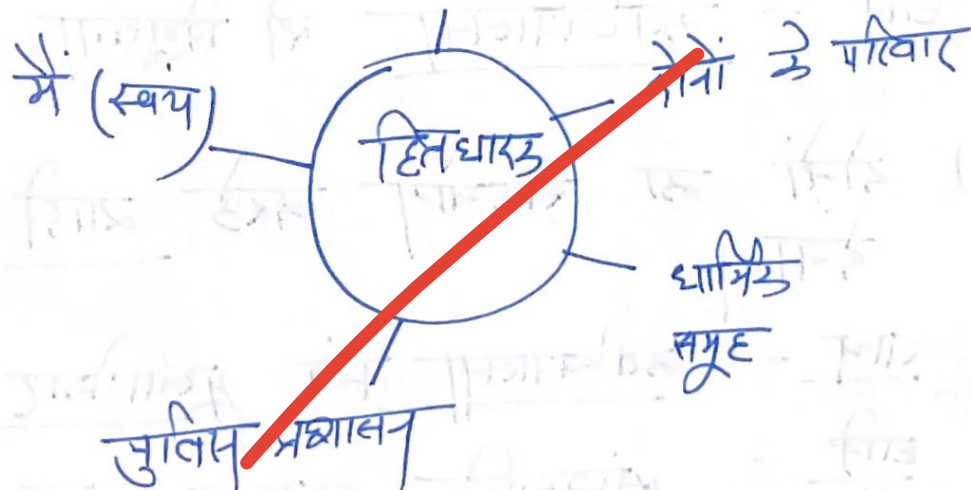 मैं (स्वयं)
हितधारक
दोनों के परिवार
धार्मिक
समूह
पुलिस प्रशासन